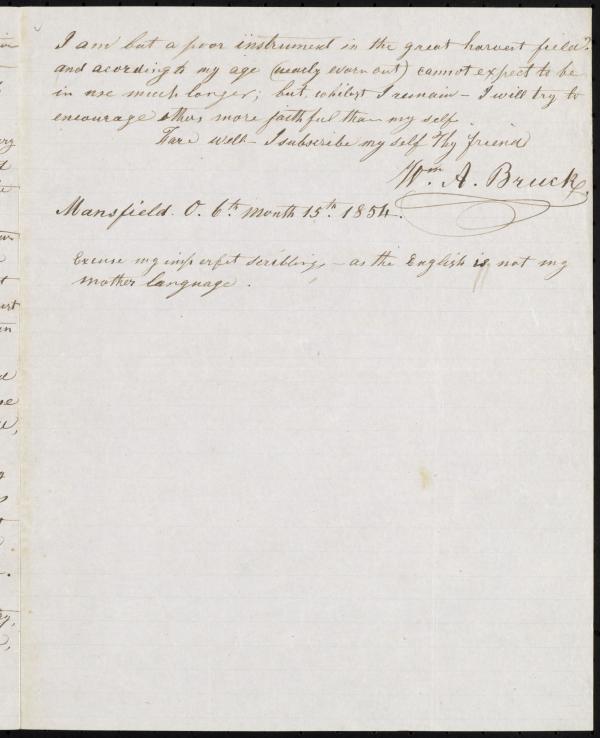 I am but a poor instrument in the great harvest field?
and acording to my age (nearly worn out) cannot expect to be
in use much longer; but, whilst I remain – I will try to
encourage others more faithful than my self.
Fare well – I subscribe my self Thy friend
Wm. A. Bruck.
Mansfield. O. 6th month 15th. 1854.
Excuse my imperfet scribling – as the English is not my
mother language.